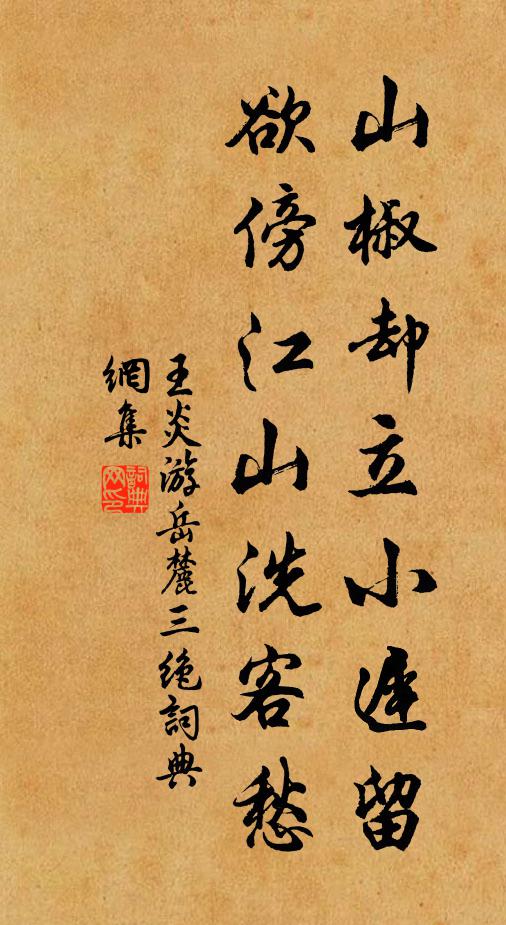 山椒却立小遲留
欲傍江山洗客愁
王炎游岳麓三絶詞典
網集
詞典
网印